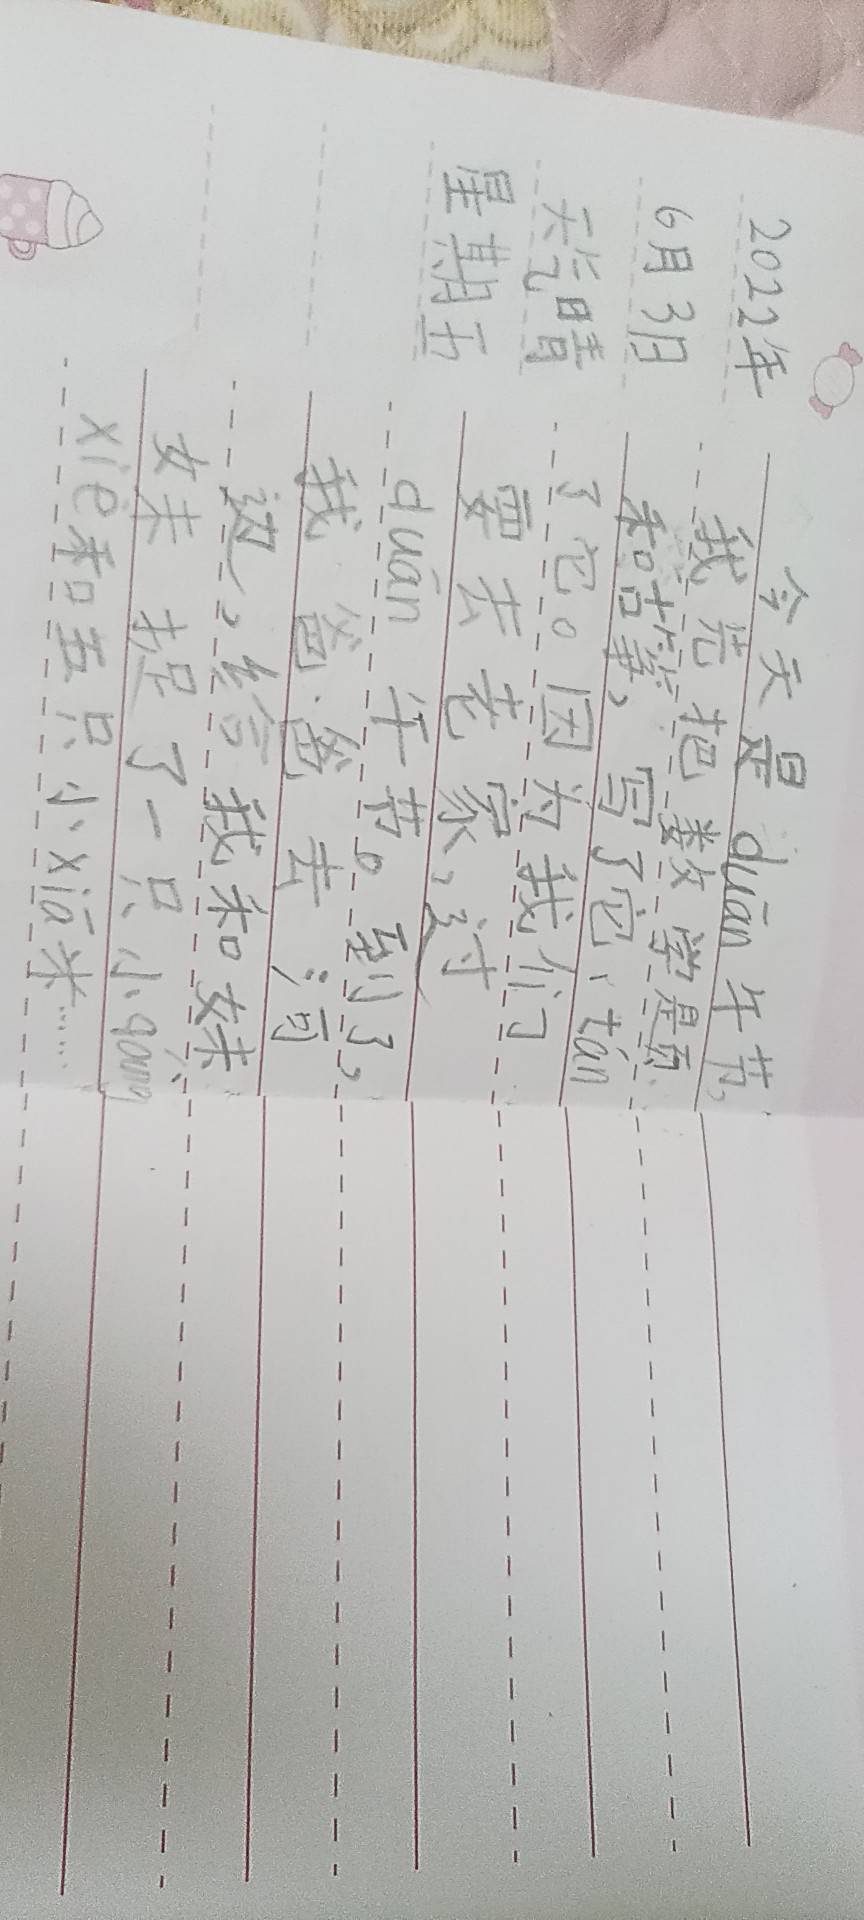 2022年
6月3日
天气晴
星期五
今天是duān午节,
我先把数学题
和古筝,写了它、tán
了它。因为我们
要去老家,过
duān午节。到了,
我爸爸去河
边,给我和妹
妹捉了一只小pang
xiè和五只小xiā米……